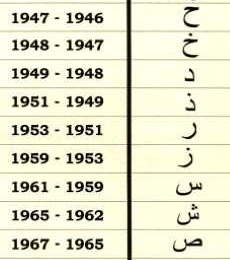 1947 - 1946 ح
1948 - 1947 خ
1949 - 1948 د
1951 - 1949 ذ
1953 - 1951 ر
1959 - 1953 ز
1961 - 1959 س
1965 - 1962 ش
1967 - 1965 ص